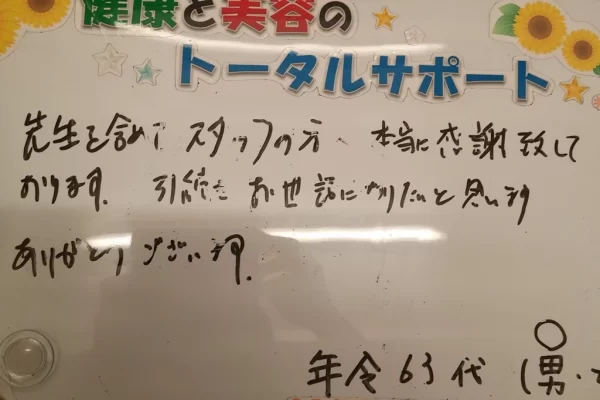 健康と美容の
トータルサポート
先生を含めスタッフの方、本当に感謝致して
おります。引続きお世話になりたいと思います
ありがとうございます。
年令63代(男・